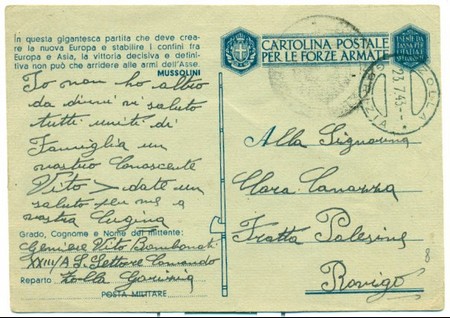 In questa gigantesca partita che deve crea-
re la nuova Europa e stabilire i confini fra
Europa e Asia, la vittoria decisiva e defini-
tiva non può che arridere alle armi dell'Asse.
MUSSOLINI
Io non ho altro
da dirvi vi saluto
tutti uniti di
Famiglia un
vostro Conoscente
Vito > date un
saluto per me a
vostra Cugina
Grado, Cognome e Nome del mittente:
Geniere Vito
XXIII/A S. Settore Comando
Reparto Zolla Gorizia
POSTA MILITARE
CARTOLINA POSTALE
PER LE FORZE ARMATE
ZOLLA
23.7.43
GORIZIA
Alla Signorina
Clara
Fratta Polesine
Rovigo
8